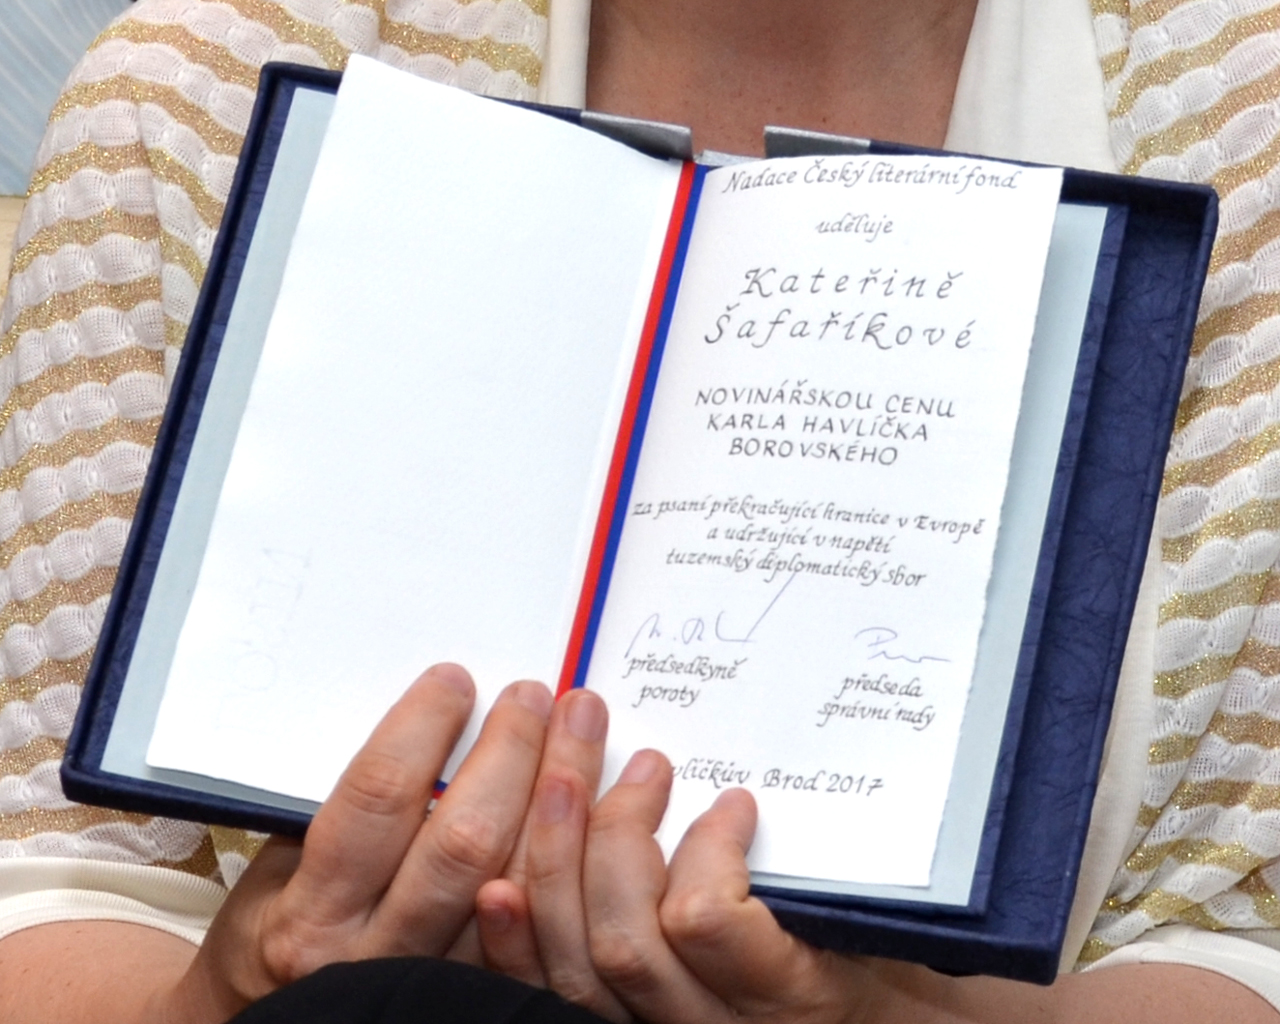 Nadace Český literární fond
uděluje
Kateřině
Šafaříkové
NOVINÁŘSKOU CENU
KARLA HAVLÍČKA
BOROVSKÉHO
za psaní překračující hranice v Evropě
a udržující v napětí
tuzemský diplomatický sbor
předsedkyně
poroty
předseda
správní rady
vlíčkův Brod 2017